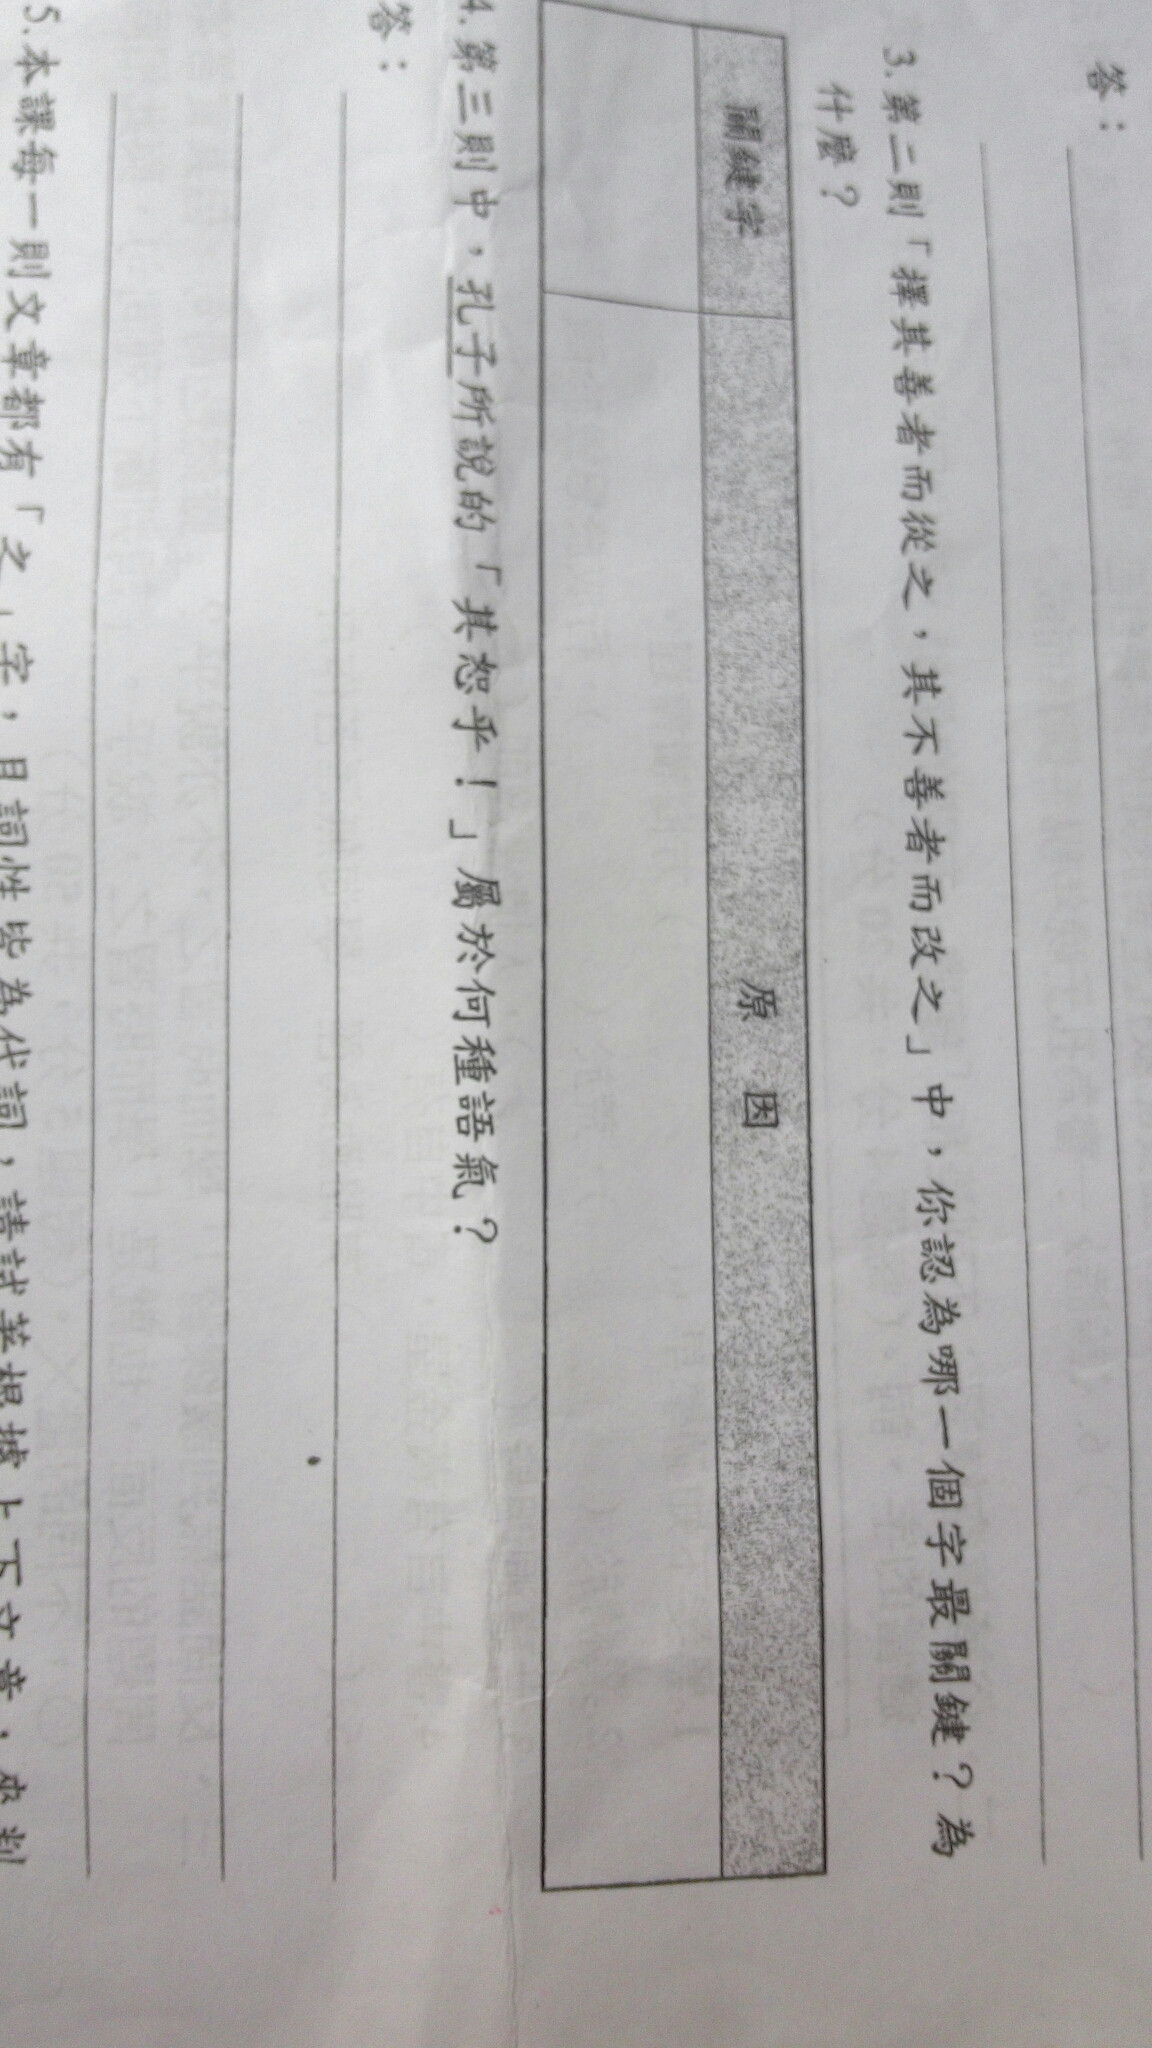 答：
3.第二則「擇其善者而從之，其不善者而改之」中，你認為哪一個字最關鍵？為
什麼？
關鍵字 原因
4.第三則中，孔子所說的「其恕乎！」屬於何種語氣？
答：
5.本課每一則文章都有「之」字，且詞性皆為代詞，請試著根據上下文意，來判